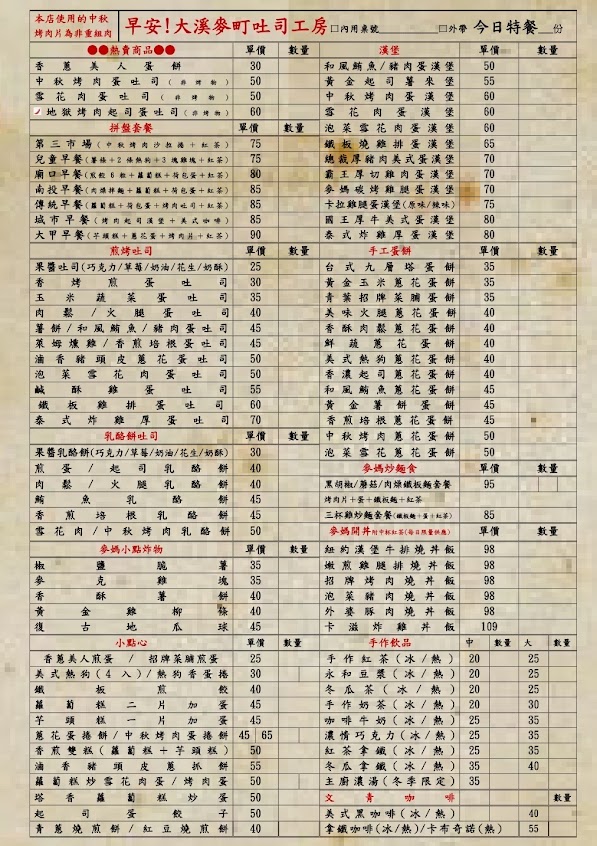 本店使用的中秋
烤肉片為非重組肉
早安!大溪麥町吐司工房 □內用桌號 □外帶 今日特餐 份
●●熱賣商品●● 單價 數量
香蔥美人蛋餅 30
中秋烤肉蛋吐司(非烤物) 50
雪花肉蛋吐司(非烤物) 50
地獄烤肉起司蛋吐司(非烤物) 60
拼盤套餐 單價 數量
第三市場(中秋烤肉沙拉捲+紅茶) 75
兒童早餐(薯條+2條熱狗+3塊雞塊+紅茶) 75
廟口早餐(煎餃6粒+蘿蔔糕+荷包蛋+紅茶) 80
南投早餐(肉燥拌麵+蘿蔔糕+荷包蛋+紅茶) 85
傳統早餐(蘿蔔糕+荷包蛋+烤肉片+紅茶) 85
城市早餐(烤肉起司漢堡+美式咖啡) 85
大甲早餐(芋頭糕+蔥花蛋+烤肉片+紅茶) 90
煎烤吐司 單價 數量
果醬吐司(巧克力/草莓/奶油/花生/奶酥) 25
香烤煎蛋吐司 30
玉米蔬菜蛋吐司 35
肉鬆/火腿蛋吐司 40
薯餅/和風鮪魚/豬肉蛋吐司 45
萊姆燻雞/香煎培根蛋吐司 45
滷香豬頭皮蔥花蛋吐司 50
泡菜雪花肉蛋吐司 50
鹹酥雞蛋吐司 55
鐵板雞排蛋吐司 60
泰式炸雞厚蛋吐司 70
乳酪餅吐司 單價 數量
果醬乳酪餅(巧克力/草莓/奶油/花生/奶酥) 30
煎蛋/起司乳酪餅 40
肉鬆/火腿乳酪餅 40
鮪魚乳酪餅 45
香煎培根乳酪餅 45
雪花肉/中秋烤肉乳酪餅 50
麥媽小點炸物 單價 數量
椒鹽脆薯 35
麥克雞塊 35
香酥薯餅 40
黃金雞柳條 40
復古地瓜球 45
小點心 單價 數量
香蔥美人煎蛋/招牌菜脯煎蛋 25
美式熱狗(4入)/熱狗香蛋捲 30
鐵板煎餃 40
蘿蔔糕二片加蛋 45
芋頭糕一片加蛋 45
蔥花蛋捲餅/中秋烤肉蛋捲餅 45 65
香煎雙糕(蘿蔔糕+芋頭糕) 50
滷香豬頭皮蔥抓餅 50
蘿蔔糕炒雪花肉蛋/烤肉蛋 50
塔香蘿蔔糕炒蛋 50
起司蛋餃子 50
青蔥燒煎餅/紅豆燒煎餅 40
漢堡 單價 數量
和風鮪魚/豬肉蛋漢堡 50
黃金起司薯來堡 55
中秋烤肉蛋漢堡 60
雪花肉蛋漢堡 60
泡菜雪花肉蛋漢堡 60
鐵板燒雞排蛋漢堡 65
總裁厚豬肉美式蛋漢堡 70
霸王厚切雞肉蛋漢堡 70
麥媽碳烤雞腿蛋漢堡 70
卡拉雞腿蛋漢堡(原味/辣味) 75
國王厚牛美式蛋漢堡 80
泰式炸雞厚蛋漢堡 80
手工蛋餅 單價 數量
台式九層塔蛋餅 35
黃金玉米蔥花蛋餅 35
青葉招牌菜脯蛋餅 35
美味火腿蔥花蛋餅 40
香酥肉鬆蔥花蛋餅 40
鮮蔬蔥花蛋餅 40
美式熱狗蔥花蛋餅 40
香濃起司蔥花蛋餅 40
和風鮪魚蔥花蛋餅 45
黃金薯餅蛋餅 45
香煎培根蔥花蛋餅 45
中秋烤肉蔥花蛋餅 50
泡菜雪花蔥花蛋餅 50
麥媽炒麵食 單價 數量
黑胡椒/蘑菇/肉燥鐵板麵套餐 95
烤肉片+蛋+鐵板麵+紅茶
三杯雞炒麵套餐(鐵板麵+蛋+紅茶) 85
麥媽開丼附中杯紅茶(每日限量供應) 單價 數量
紐約漢堡牛排燒丼飯 98
嫩煎雞腿排燒丼飯 98
招牌烤肉燒丼飯 98
泡菜豬肉燒丼飯 98
外婆豚肉燒丼飯 98
卡滋炸雞丼飯 109
手作飲品 中 數量 大 數量
手作紅茶(冰/熱) 20 25
永和豆漿(冰/熱) 20 25
冬瓜茶(冰/熱) 20 25
手作奶茶(冰/熱) 20 30
咖啡牛奶(冰/熱) 25 35
濃情巧克力(冰/熱) 25 35
紅茶拿鐵(冰/熱) 25 35
冬瓜拿鐵(冰/熱) 35 40
主廚濃湯(冬季限定) 35
文青咖啡 數量
美式黑咖啡(冰/熱) 40
拿鐵咖啡(冰/熱)/卡布奇諾(熱) 55